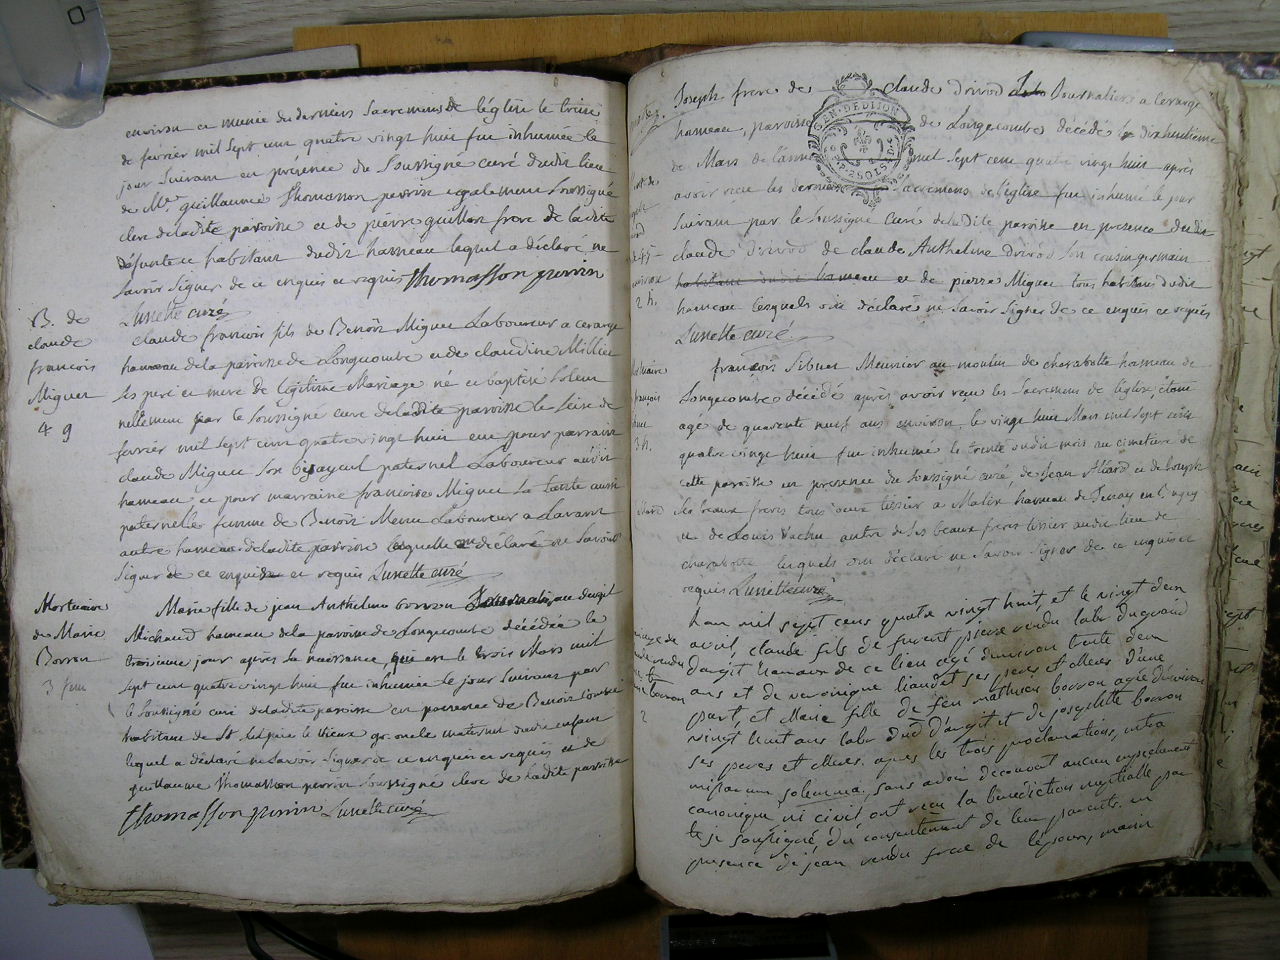 environ et munie du derniers Sacremens de l'église le treize
de fevrier mil Sept cent quatre vingt huit fut inhumée le
jour Suivant en présence du Soussigné curé dudit lieu
de Mr guillaume Thomasson perrin egalement Soussigné
clerc deladite paroisse et de pierre guillon frere de ladite
défunte et habitant dudit hameau lequel a déclaré ne
Savoir Signer de ce enquis et requis Thomasson perrin
Lunette curé
B. de
claude
françois
Miguet
4 g
claude françois fils de Benoît Miguet Laboureur a cerarge
hameau dela paroisse de Longecombe et de claudine Millier
Ses pere et mere de légitime Mariage né et baptisé Solem
nellement par le Soussigné curé deladite paroisse le Seize de
fevrier mil Sept cent quatre vingt huit eut pour parrain
claude Miguet Son bisayeul paternel Laboureur audit
hameau et pour marraine françoise Miguet Sa tante aussi
paternelle femme de Benoît Laboureur a Lavant
autre hameau deladite paroisse laquelle a déclaré ne Savoir
Signer de ce enquise et requis Lunette curé
Mortuaire
de Marie
Borron
3 fem
Marie fille de jean Anthelme borron Journalier au dergit
Michaud hameau dela paroisse de Longecombe décédée le
troisieme jour après Sa naissance, qui est le trois Mars mil
Sept cent quatre vingt huit fut inhumée le jour Suivant par
le Soussigné curé deladite paroisse en presence de Benoît
habitant de St Sulpice le vieux gr. oncle maternel dudit enfant
lequel a déclaré ne Savoir Signer de ce enquis et requis et de
guillaume Thomasson perrin Soussigné clerc de Ladite paroisse
Thomasson perrin Lunette curé
Joseph frere de claude Drivod Journalier a cerarge
hameau, paroisse de Longecombe décédé le dixhuitième
de Mars de l'année mil Sept cent quatre vingt huit après
avoir reçu les derniers Sacremens de l'église fut inhumé le jour
Suivant par le Soussigné curé deladite paroisse en presence dudit
claude Drivod de claude Anthelme Drivod Son cousin germain
habitant dudit hameau et de pierre Miguet tous habitans dudit
hameau lesquels ont déclaré ne Savoir Signer de ce enquis et requis
Lunette curé
GEN. DE DIJON
2 SOLS
2 h.
françois Sibuet Meunier au moulin de charabotte hameau de
Longecombe décédé après avoir reçu les Sacremens de l'église, étant
agé de quarente neuf ans environ le vingt huit Mars mil Sept cent
quatre vingt huit fut inhumé le trente dudit mois au cimetiere de
cette paroisse en presence du Soussigné curé, de Jean Allard et de Joseph
Ses beaux freres tous deux tissier a Malix hameau de Tenay en Bugey
et de Louis Vachu autre de Ses beaux freres tissier audit lieu de
charabotte lesquels ont déclaré ne Savoir Signer de ce enquis et
requis Lunette curé
3 h.
2
L'an mil sept cens quatre vingt huit et le vingt deux
avril, claude fils de fuvent pierre vendu labr dugrand
Dargit hameau de ce lieu agé d'environ trente deux
ans et de veronique liaudet ses peres et meres d'une
part, et Marie fille de feu mathieu borron agée d'environ
vingt huit ans labr dud d'argit et de josephtte borron
ses peres et meres. apres les trois proclamations, intra
missarum solemnia, sans avoir decouvert aucun empechement
canonique ni civil ont reçu la benediction nuptialle par
je soussigné, du consentement de leur parents, en
presence de jean vendu frere de l'epoux,